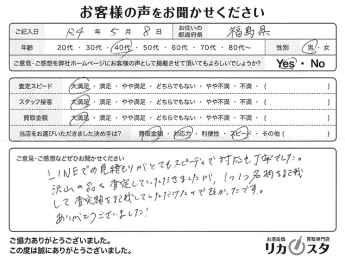 お客様の声をお聞かせください
ご記入日 R4 年 5 月 8 日 お住いの都道府県 福島県
年齢 20代・30代・40代・50代・60代・70代・80代～ 性別 男・女
ご意見・ご感想を弊社ホームページにお客様の声として掲載させて頂いてもよろしいでしょうか？ Yes・No
査定スピード 大満足・満足・やや満足・どちらでもない・やや不満・不満・（ ）
スタッフ接客 大満足・満足・やや満足・どちらでもない・やや不満・不満・（ ）
買取金額 大満足・満足・やや満足・どちらでもない・やや不満・不満・（ ）
当店をお選びいただきました決め手は？ 買取金額・対応力・利便性・スピード・その他（ ）
ご意見・ご感想などぜひお聞かせください
LINEでの見積もりがとてもスピーディで対応も丁寧でした。
沢山の品を査定していただきましたが、1つ1つ名前を記載
して査定額を記載していただけたので良かったです。
ありがとうございました！
ご協力ありがとうございました。
この度は誠にありがとうございました。
お酒高価 買取専門店
リカスタ